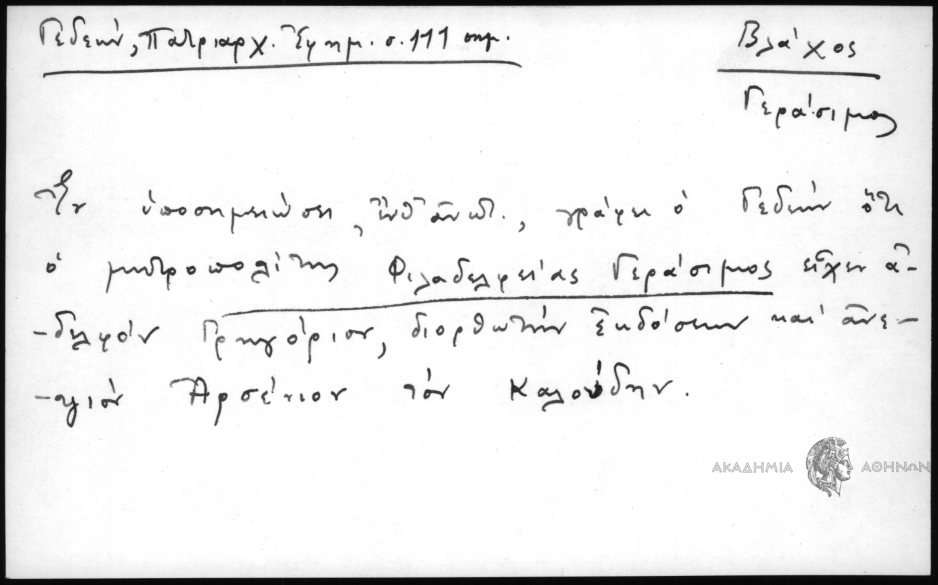 Γεδεών, Πατριαρχ. Ἐφημ. σ. 111 σημ.
Βλάχος
Γεράσιμος
Ἐν ὑποσημειώσει, ἔνθ' ἀνωτ., γράφει ὁ Γεδεών ὅτι
ὁ μητροπολίτης Φιλαδελφείας Γεράσιμος εἶχεν ἀ-
-δελφόν Γρηγόριον, διορθωτήν ἐκδόσεων καί ἀνε-
-ψιόν Ἀρσένιον τόν Καλούδην.
ΑΚΑΔΗΜΙΑ ΑΘΗΝΩΝ